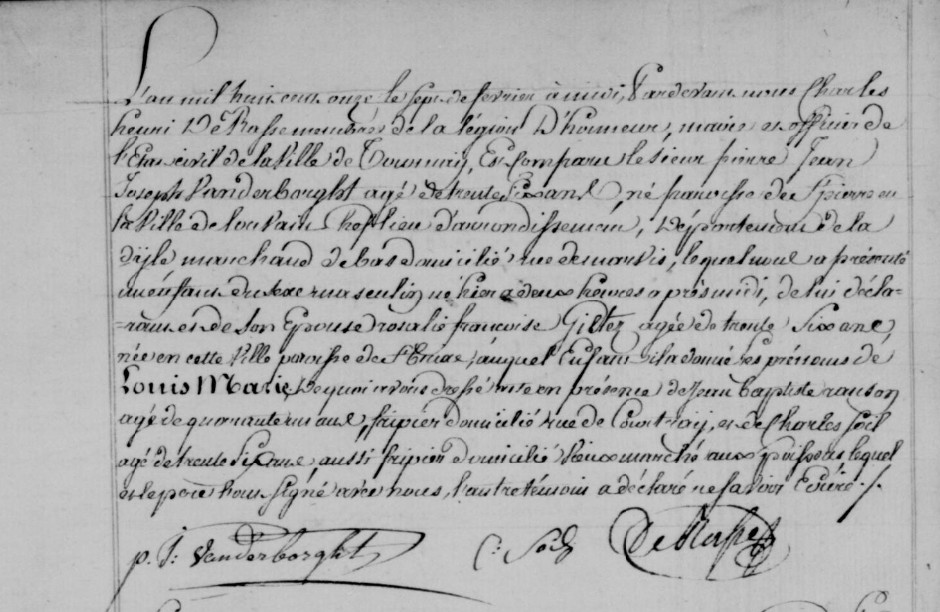 L'an mil huit cent onze le sept de fevrier à midi, Pardevant nous Charles
henri De Rasse membre de la légion D'honneur, maire et officier de
l'Etat civil de la Ville de Tournay, Est Comparu le sieur pierre Jean
Joseph Vanderborght agé de trente six ans, né paroisse de St pierre en
la Ville de louvain Chef lieu d'arrondissement, Département de la
dijle marchand de bas domicilié rue de marvis, lequel nous a présenté
un enfant du sexe masculin né hier a deux heures après midi, de lui décla-
=rant et de son Epouse rosalie francoise Giltez agée de trente Six ans,
née en cette Ville paroisse de auquel Enfant il a donné les prénoms de
Louis Marie, De quoi avons dressé acte en présence de Jean Baptiste
agé de quarante un ans, fripier domicilié rue de Courtray, et de Charles Soil
agé de trente Six ans aussi fripier domicilié Vieux marché aux poissons lequel
et le père nous signé avec nous, l'autre témoin a déclaré ne savoir Ecrire ./.
p. J: Vanderborght C: Soil De Rasse